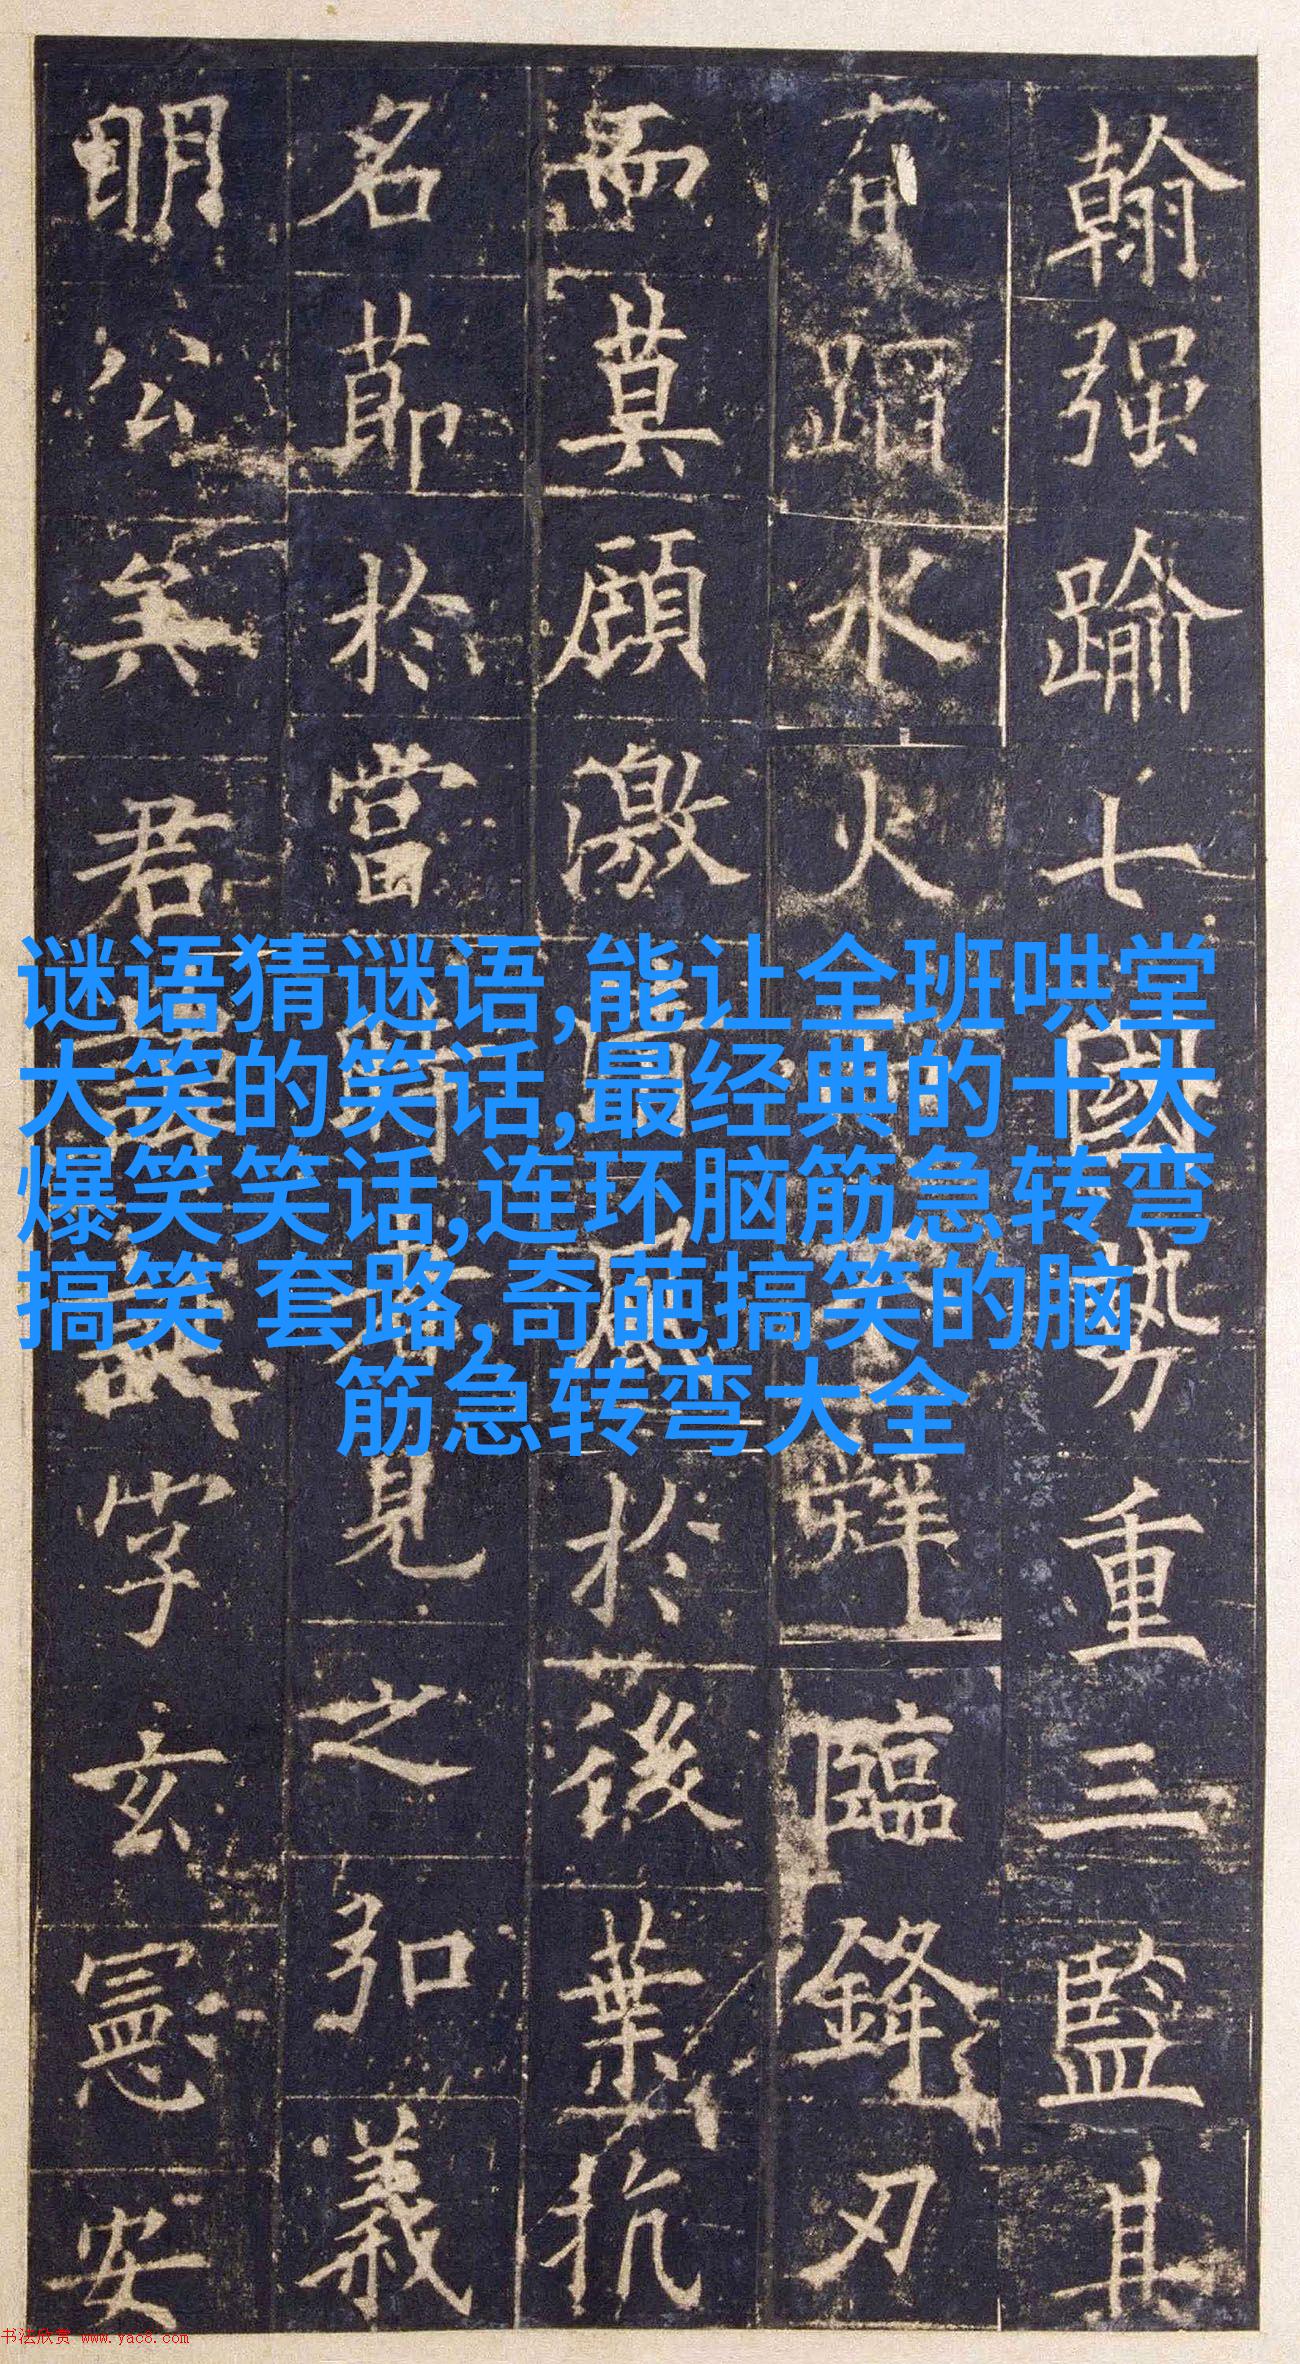 翰强踰七國勢重三監其
有蹈水火辭臨鋒刃
而莫顧激風於後葉抗
名節於當時者見之弘義
明公矣君諱誕字玄憲安
谜语猜谜语,能让全班哄堂
大笑的笑话,最经典的十大
爆笑笑话,连环脑筋急转弯
搞笑 套路,奇葩搞笑的脑
筋急转弯大全
书法欣赏 www.yac8.com